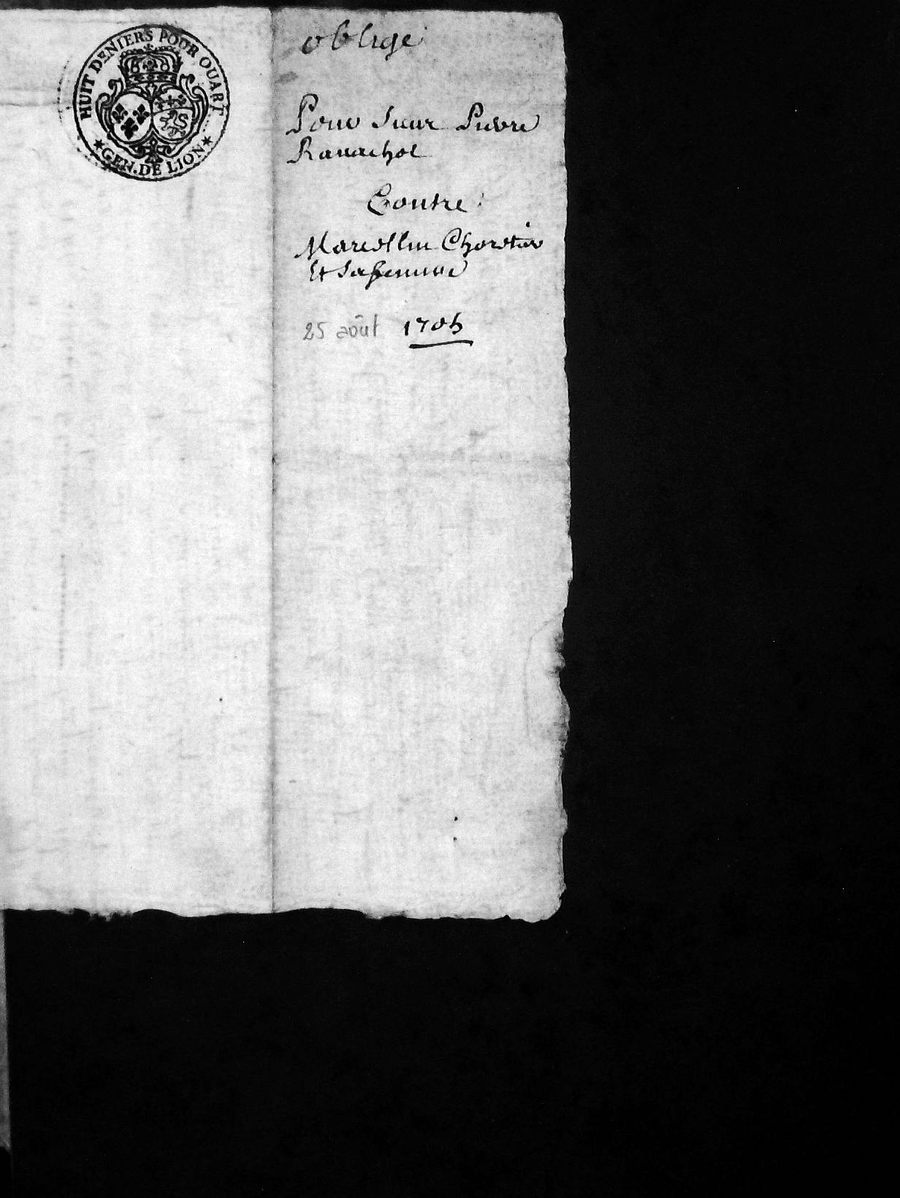 HUIT DENIERS POUR QUART
★ GEN. DE LION ★
oblige
Pour Sieur Pierre
Ravachol
Contre
Marcellin Choretier
Et Sa femme
25 août 1705